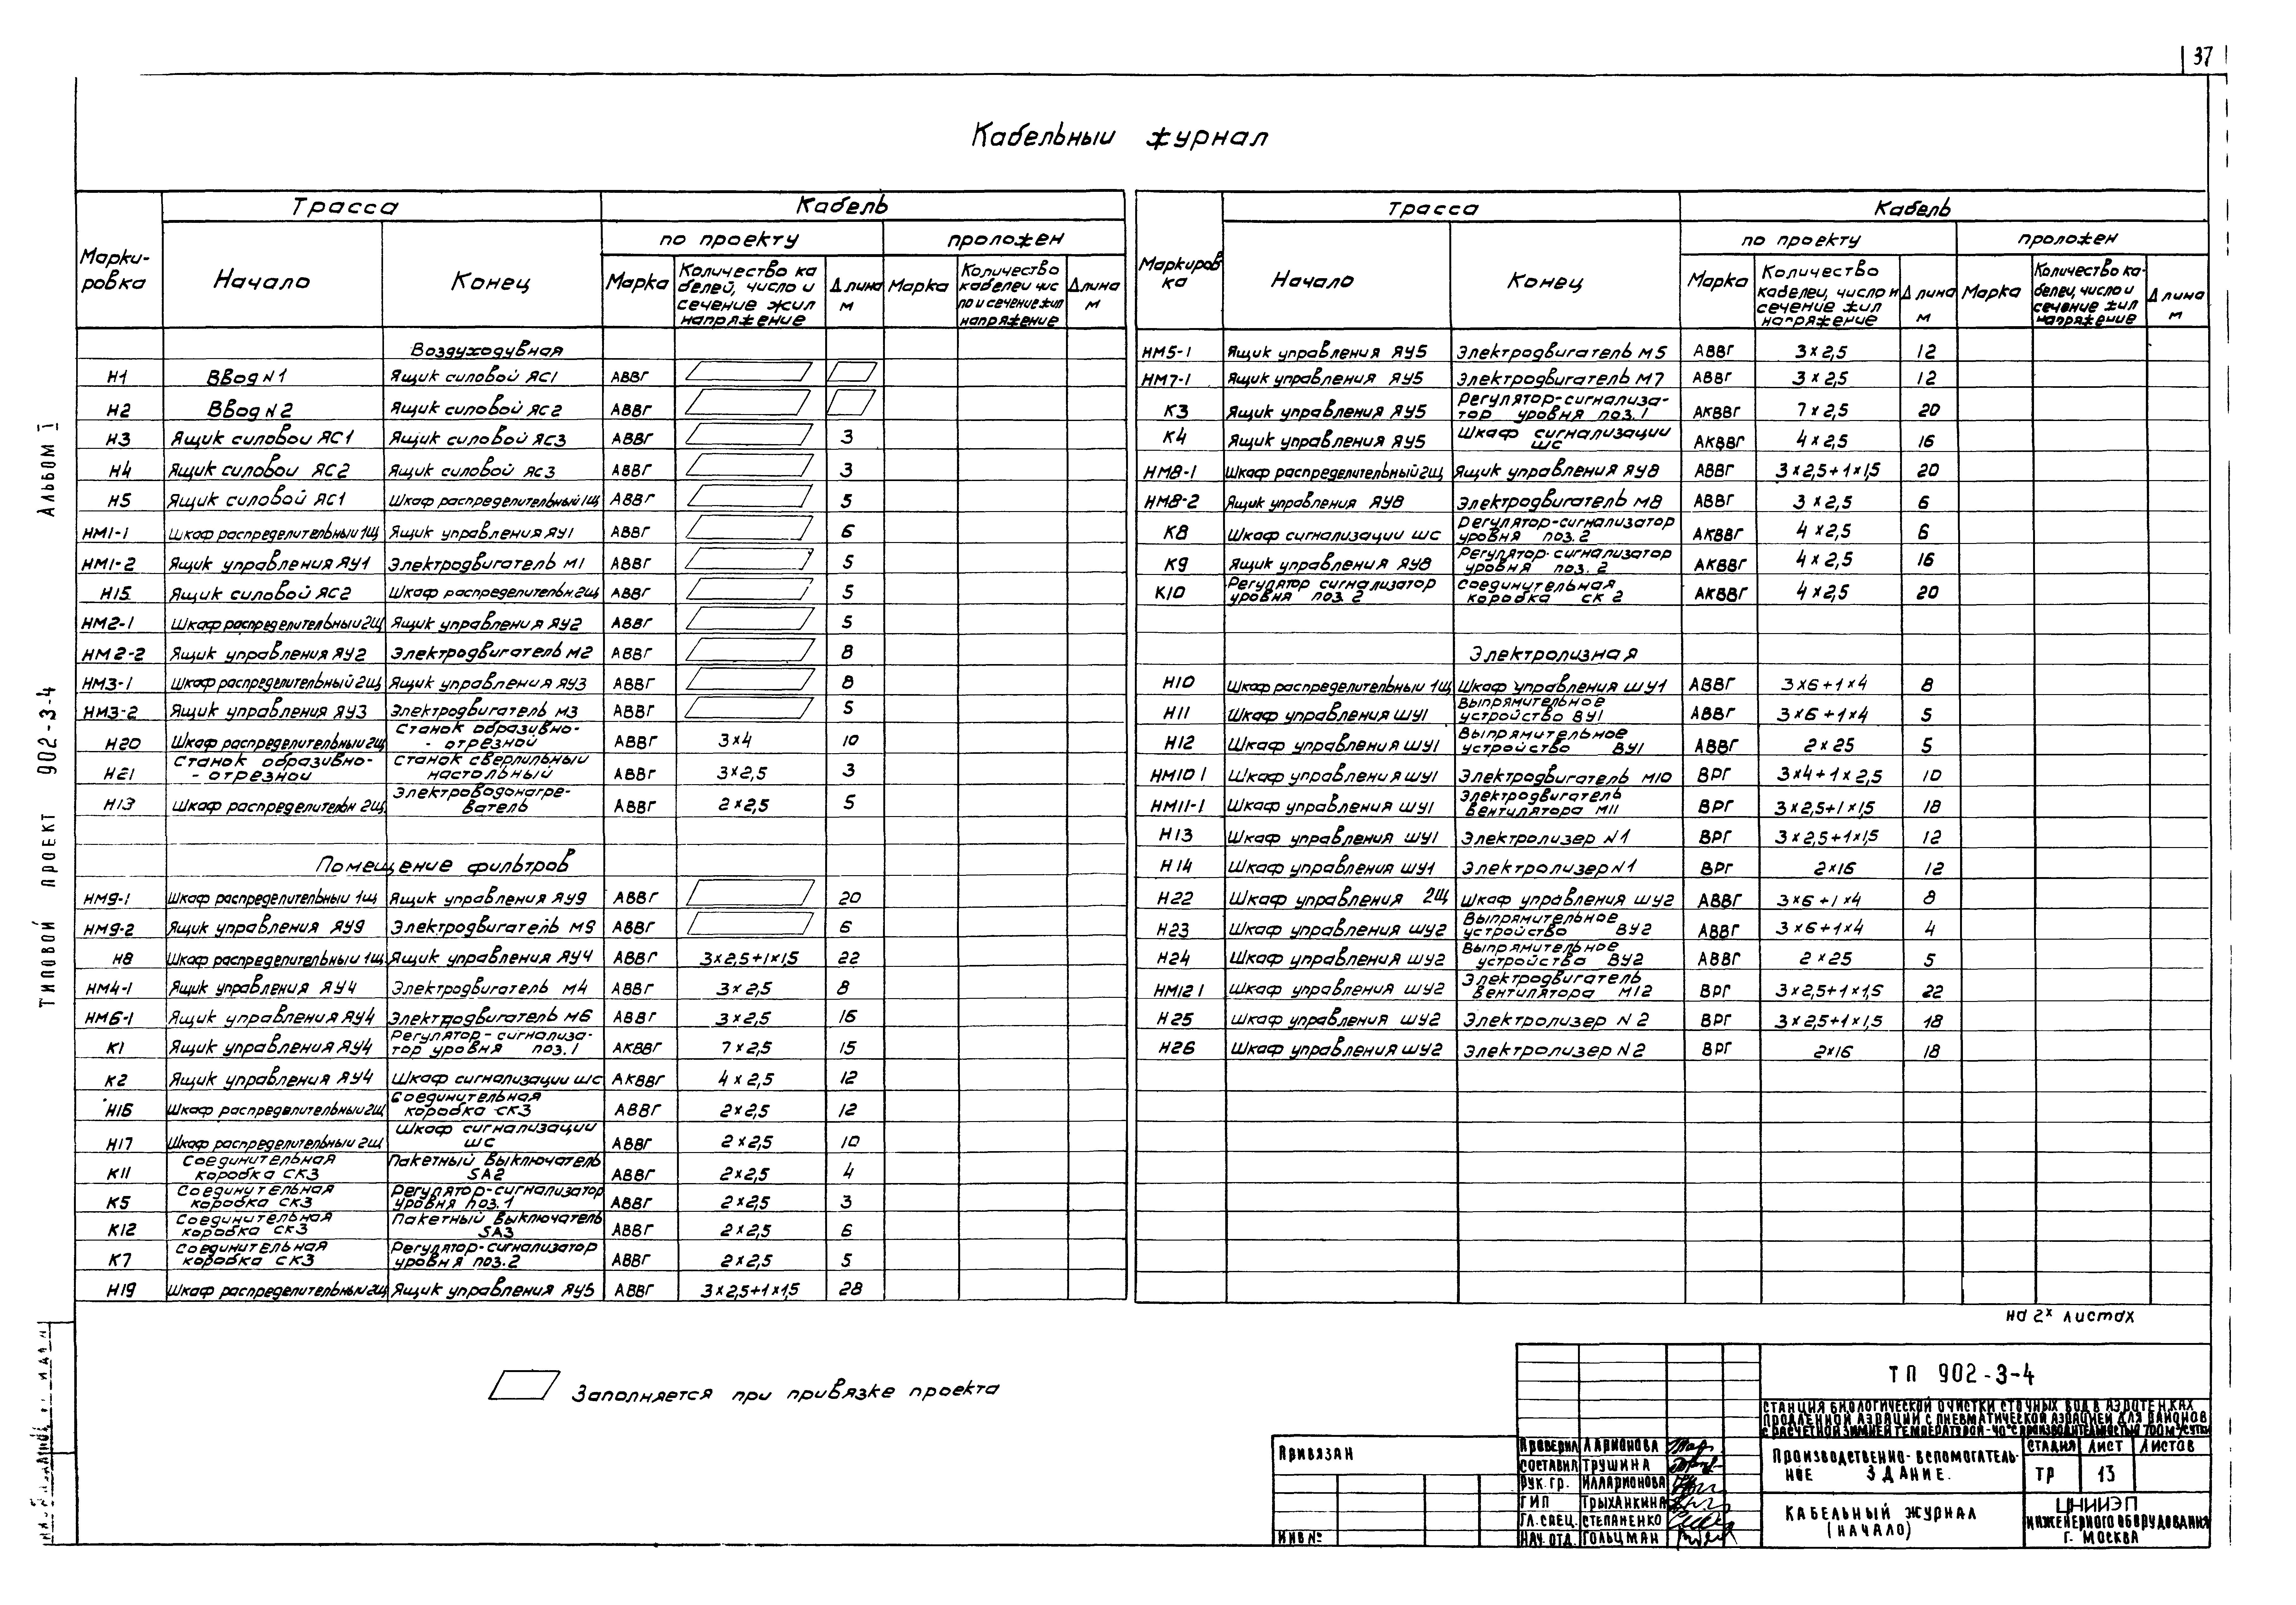 37
Кабельныи журнал
Марки-ровка | Трасса | Кабель
по проекту | проложен
Начало | Конец | Марка | Количество кабелей, число и сечение жил напряжение | Длина м | Марка | Количество кабелей число и сечение жил напряжение | Длина м
Воздуходувная
Н1 Ввод N1 Ящик силовой ЯС1 АВВГ
Н2 Ввод N2 Ящик силовой ЯС2 АВВГ
Н3 Ящик силовой ЯС1 Ящик силовой ЯС3 АВВГ 3
Н4 Ящик силовой ЯС2 Ящик силовой ЯС3 АВВГ 3
Н5 Ящик силовой ЯС1 Шкаф распределительный 1щ АВВГ 5
НМ1-1 Шкаф распределительный 1щ Ящик управления ЯУ1 АВВГ 6
НМ1-2 Ящик управления ЯУ1 Электродвигатель М1 АВВГ 5
Н15 Ящик силовой ЯС2 Шкаф распределительн. 2щ АВВГ 5
НМ2-1 Шкаф распределительный 2щ Ящик управления ЯУ2 АВВГ 5
НМ2-2 Ящик управления ЯУ2 Электродвигатель М2 АВВГ 8
НМ3-1 Шкаф распределительный 2щ Ящик управления ЯУ3 АВВГ 8
НМ3-2 Ящик управления ЯУ3 Электродвигатель М3 АВВГ 5
Н20 Шкаф распределительный 2щ Станок образивно-отрезной АВВГ 3×4 10
Н21 Станок образивно-отрезной Станок сверлильный настольный АВВГ 3×2,5 3
Н13 Шкаф распределительн 2щ Электроводонагреватель АВВГ 2×2,5 5
Помещение фильтров
НМ9-1 Шкаф распределительный 1щ Ящик управления ЯУ9 АВВГ 20
НМ9-2 Ящик управления ЯУ9 Электродвигатель М9 АВВГ 6
Н8 Шкаф распределительный 1щ Ящик управления ЯУ4 АВВГ 3×2,5+1×1,5 22
НМ4-1 Ящик управления ЯУ4 Электродвигатель М4 АВВГ 3×2,5 8
НМ6-1 Ящик управления ЯУ4 Электродвигатель М6 АВВГ 3×2,5 16
К1 Ящик управления ЯУ4 Регулятор-сигнализатор уровня поз.1 АКВВГ 7×2,5 15
К2 Ящик управления ЯУ4 Шкаф сигнализации шс АКВВГ 4×2,5 12
Н16 Шкаф распределительный 2щ Соединительная коробка СК3 АВВГ 2×2,5 12
Н17 Шкаф распределительный 2щ Шкаф сигнализации шс АВВГ 2×2,5 10
К11 Соединительная коробка СК3 Пакетный выключатель SA2 АВВГ 2×2,5 4
К5 Соединительная коробка СК3 Регулятор-сигнализатор уровня поз.1 АВВГ 2×2,5 3
К12 Соединительная коробка СК3 Пакетный выключатель SA3 АВВГ 2×2,5 6
К7 Соединительная коробка СК3 Регулятор-сигнализатор уровня поз.2 АВВГ 2×2,5 5
Н19 Шкаф распределительный 2щ Ящик управления ЯУ5 АВВГ 3×2,5+1×1,5 28
Маркировка | Трасса | Кабель
по проекту | проложен
Начало | Конец | Марка | Количество кабелей, число и сечение жил напряжение | Длина м | Марка | Количество кабелей, число и сечение жил напряжение | Длина м
НМ5-1 Ящик управления ЯУ5 Электродвигатель М5 АВВГ 3×2,5 12
НМ7-1 Ящик управления ЯУ5 Электродвигатель М7 АВВГ 3×2,5 12
К3 Ящик управления ЯУ5 Регулятор-сигнализатор уровня поз.1 АКВВГ 7×2,5 20
К4 Ящик управления ЯУ5 Шкаф сигнализации шс АКВВГ 4×2,5 16
НМ8-1 Шкаф распределительный 2щ Ящик управления ЯУ8 АВВГ 3×2,5+1×1,5 20
НМ8-2 Ящик управления ЯУ8 Электродвигатель М8 АВВГ 3×2,5 6
К8 Шкаф сигнализации шс Регулятор-сигнализатор уровня поз.2 АКВВГ 4×2,5 6
К9 Ящик управления ЯУ8 Регулятор-сигнализатор уровня поз.2 АКВВГ 4×2,5 16
К10 Регулятор сигнализатор уровня поз.2 Соединительная коробка СК2 АКВВГ 4×2,5 20
Электролизная
Н10 Шкаф распределительный 1щ Шкаф управления ШУ1 АВВГ 3×6+1×4 8
Н11 Шкаф управления ШУ1 Выпрямительное устройство ВУ1 АВВГ 3×6+1×4 5
Н12 Шкаф управления ШУ1 Выпрямительное устройство ВУ1 АВВГ 2×25 5
НМ10 1 Шкаф управления ШУ1 Электродвигатель М10 ВРГ 3×4+1×2,5 10
НМ11-1 Шкаф управления ШУ1 Электродвигатель вентилятора М11 ВРГ 3×2,5+1×1,5 18
Н13 Шкаф управления ШУ1 Электролизер N1 ВРГ 3×2,5+1×1,5 12
Н14 Шкаф управления ШУ1 Электролизер N1 ВРГ 2×16 12
Н22 Шкаф управления 2щ Шкаф управления ШУ2 АВВГ 3×6+1×4 8
Н23 Шкаф управления ШУ2 Выпрямительное устройство ВУ2 АВВГ 3×6+1×4 4
Н24 Шкаф управления ШУ2 Выпрямительное устройство ВУ2 АВВГ 2×25 5
НМ12 1 Шкаф управления ШУ2 Электродвигатель вентилятора М12 ВРГ 3×2,5+1×1,5 22
Н25 Шкаф управления ШУ2 Электролизер N2 ВРГ 3×2,5+1×1,5 18
Н26 Шкаф управления ШУ2 Электролизер N2 ВРГ 2×16 18
на 2х листах
Заполняется при привязке проекта
Альбом I
Типовой проект 902-3-4
ТП 902-3-4
Станция биологической очистки сточных вод в аэротенках
продленной аэрации с пневматической аэрацией для районов
с расчетной зимней температурой -40°С производительностью 700 м³/сутки
Производственно-вспомогательное здание.
Стадия Лист Листов
ТР 13
Кабельный журнал
(начало)
ЦНИИЭП
инженерного оборудования
г. Москва
Привязан
Инв №
Проверил Ларионова
Составил Трушина
Рук. гр. Илларионова
ГИП Трыханкина
Гл. спец. Степаненко
Нач. отд. Гольцман